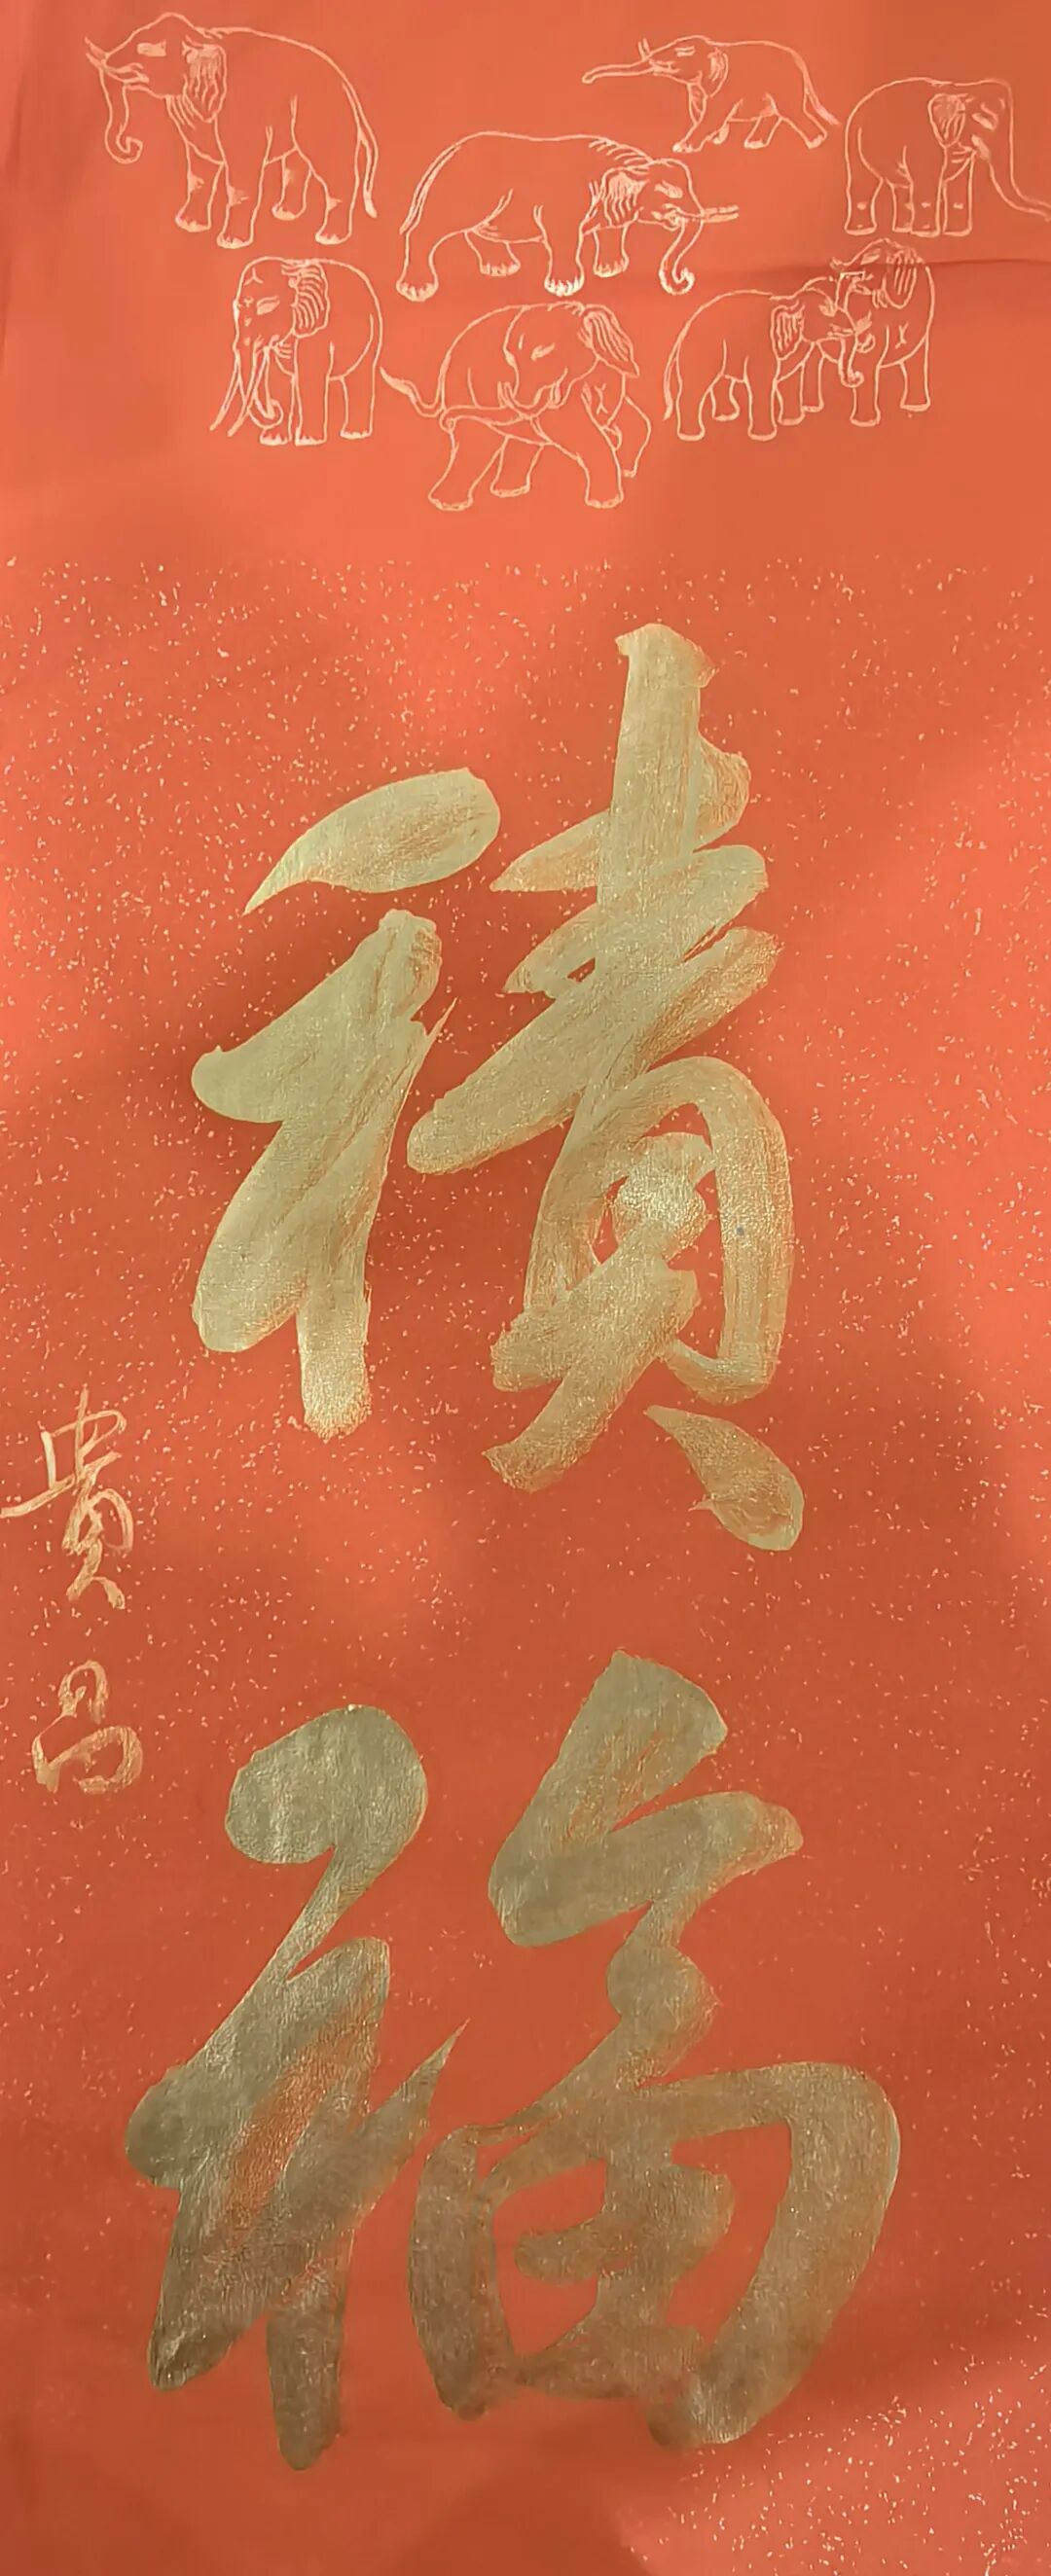 積福
貴昌